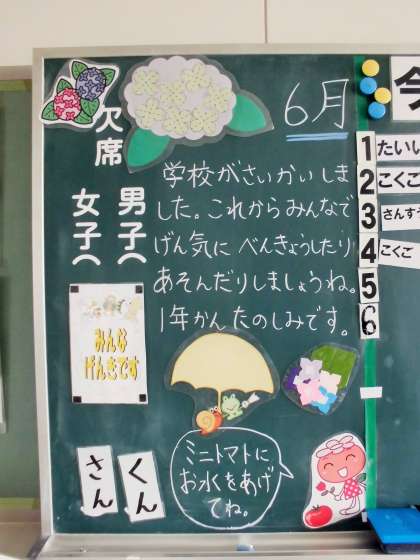 欠席
男子(
女子(
みんな
げんきです
さん
くん
6月
学校がさいかいしま
した。これからみんなで
げん気に べんきょうしたり
あそんだりしましょうね。
1年かんたのしみです。
ミニトマトに
お水をあげ
てね。
今
1 たいい
2 こくご
3 さんすう
4 こくご
5
6